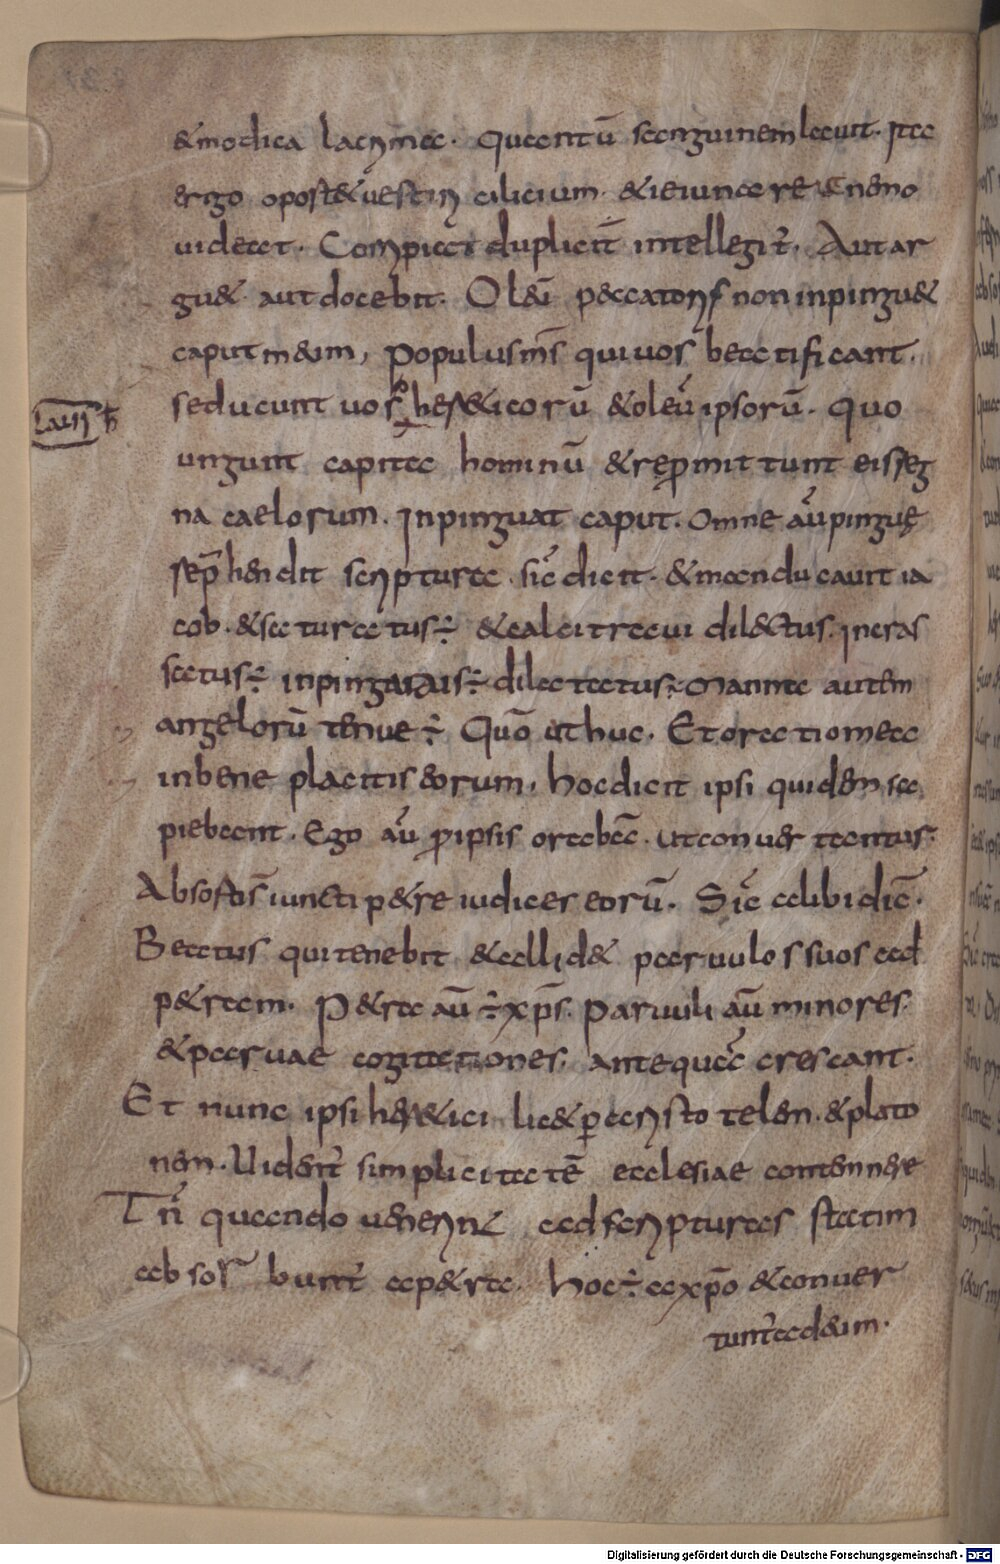 & modica lacrimae. Quantū sanguinem lauit. Ita
ergo opost& uestiri cilicium. & ieiunare & nemo
uideat. Corripi& duplicit intellegit̄. Aut ar
gu&. aut docebit. Oleū peccatoris non inpingu&
caput meum, populus m̄s qui uos beatificant.
seducunt uos. her&icorū & oleū ipsorū. Quo
ungunt capita hominū & rep̄mittunt eis reg
na caelorum. Inpinguat caput. Omne aū pingue
rep̄hendit scriptura. sic̄ dicit. & manducauit ia
cob. & saturatus ÷ & calcitrauit dilectus. Incras
satus ÷ inpinguatus ÷ dilatatus ÷ Manna autem
angelorū tenue ÷ Quō ut huc. Et oratio mea
in bene placitis eorum. hoc dicit ipsi quidem sae
piebant. Ego aū p̄ ipsis orabā. ut conuertantur.
Absorti s̄ iuncti p&re iudices eorū. Sic̄ alibi dic̄.
Beatus qui tenebit & allid& paruulos suos ad
p&ram. P&ra aū ÷ xp̄s. Paruuli aū minores.
& paruae cogitationes. antequā crescant.
Et nunc ipsi her&ici lic& p aristotelen. & plato
nem. Uident̄ simplicitatē ecclesiae contemnere
Tn̄ quando uenerint ad scripturas statim
absorbunt̄ a p&ra. hoc ÷ a xp̄o & conuer
tunt̄ ad eum.